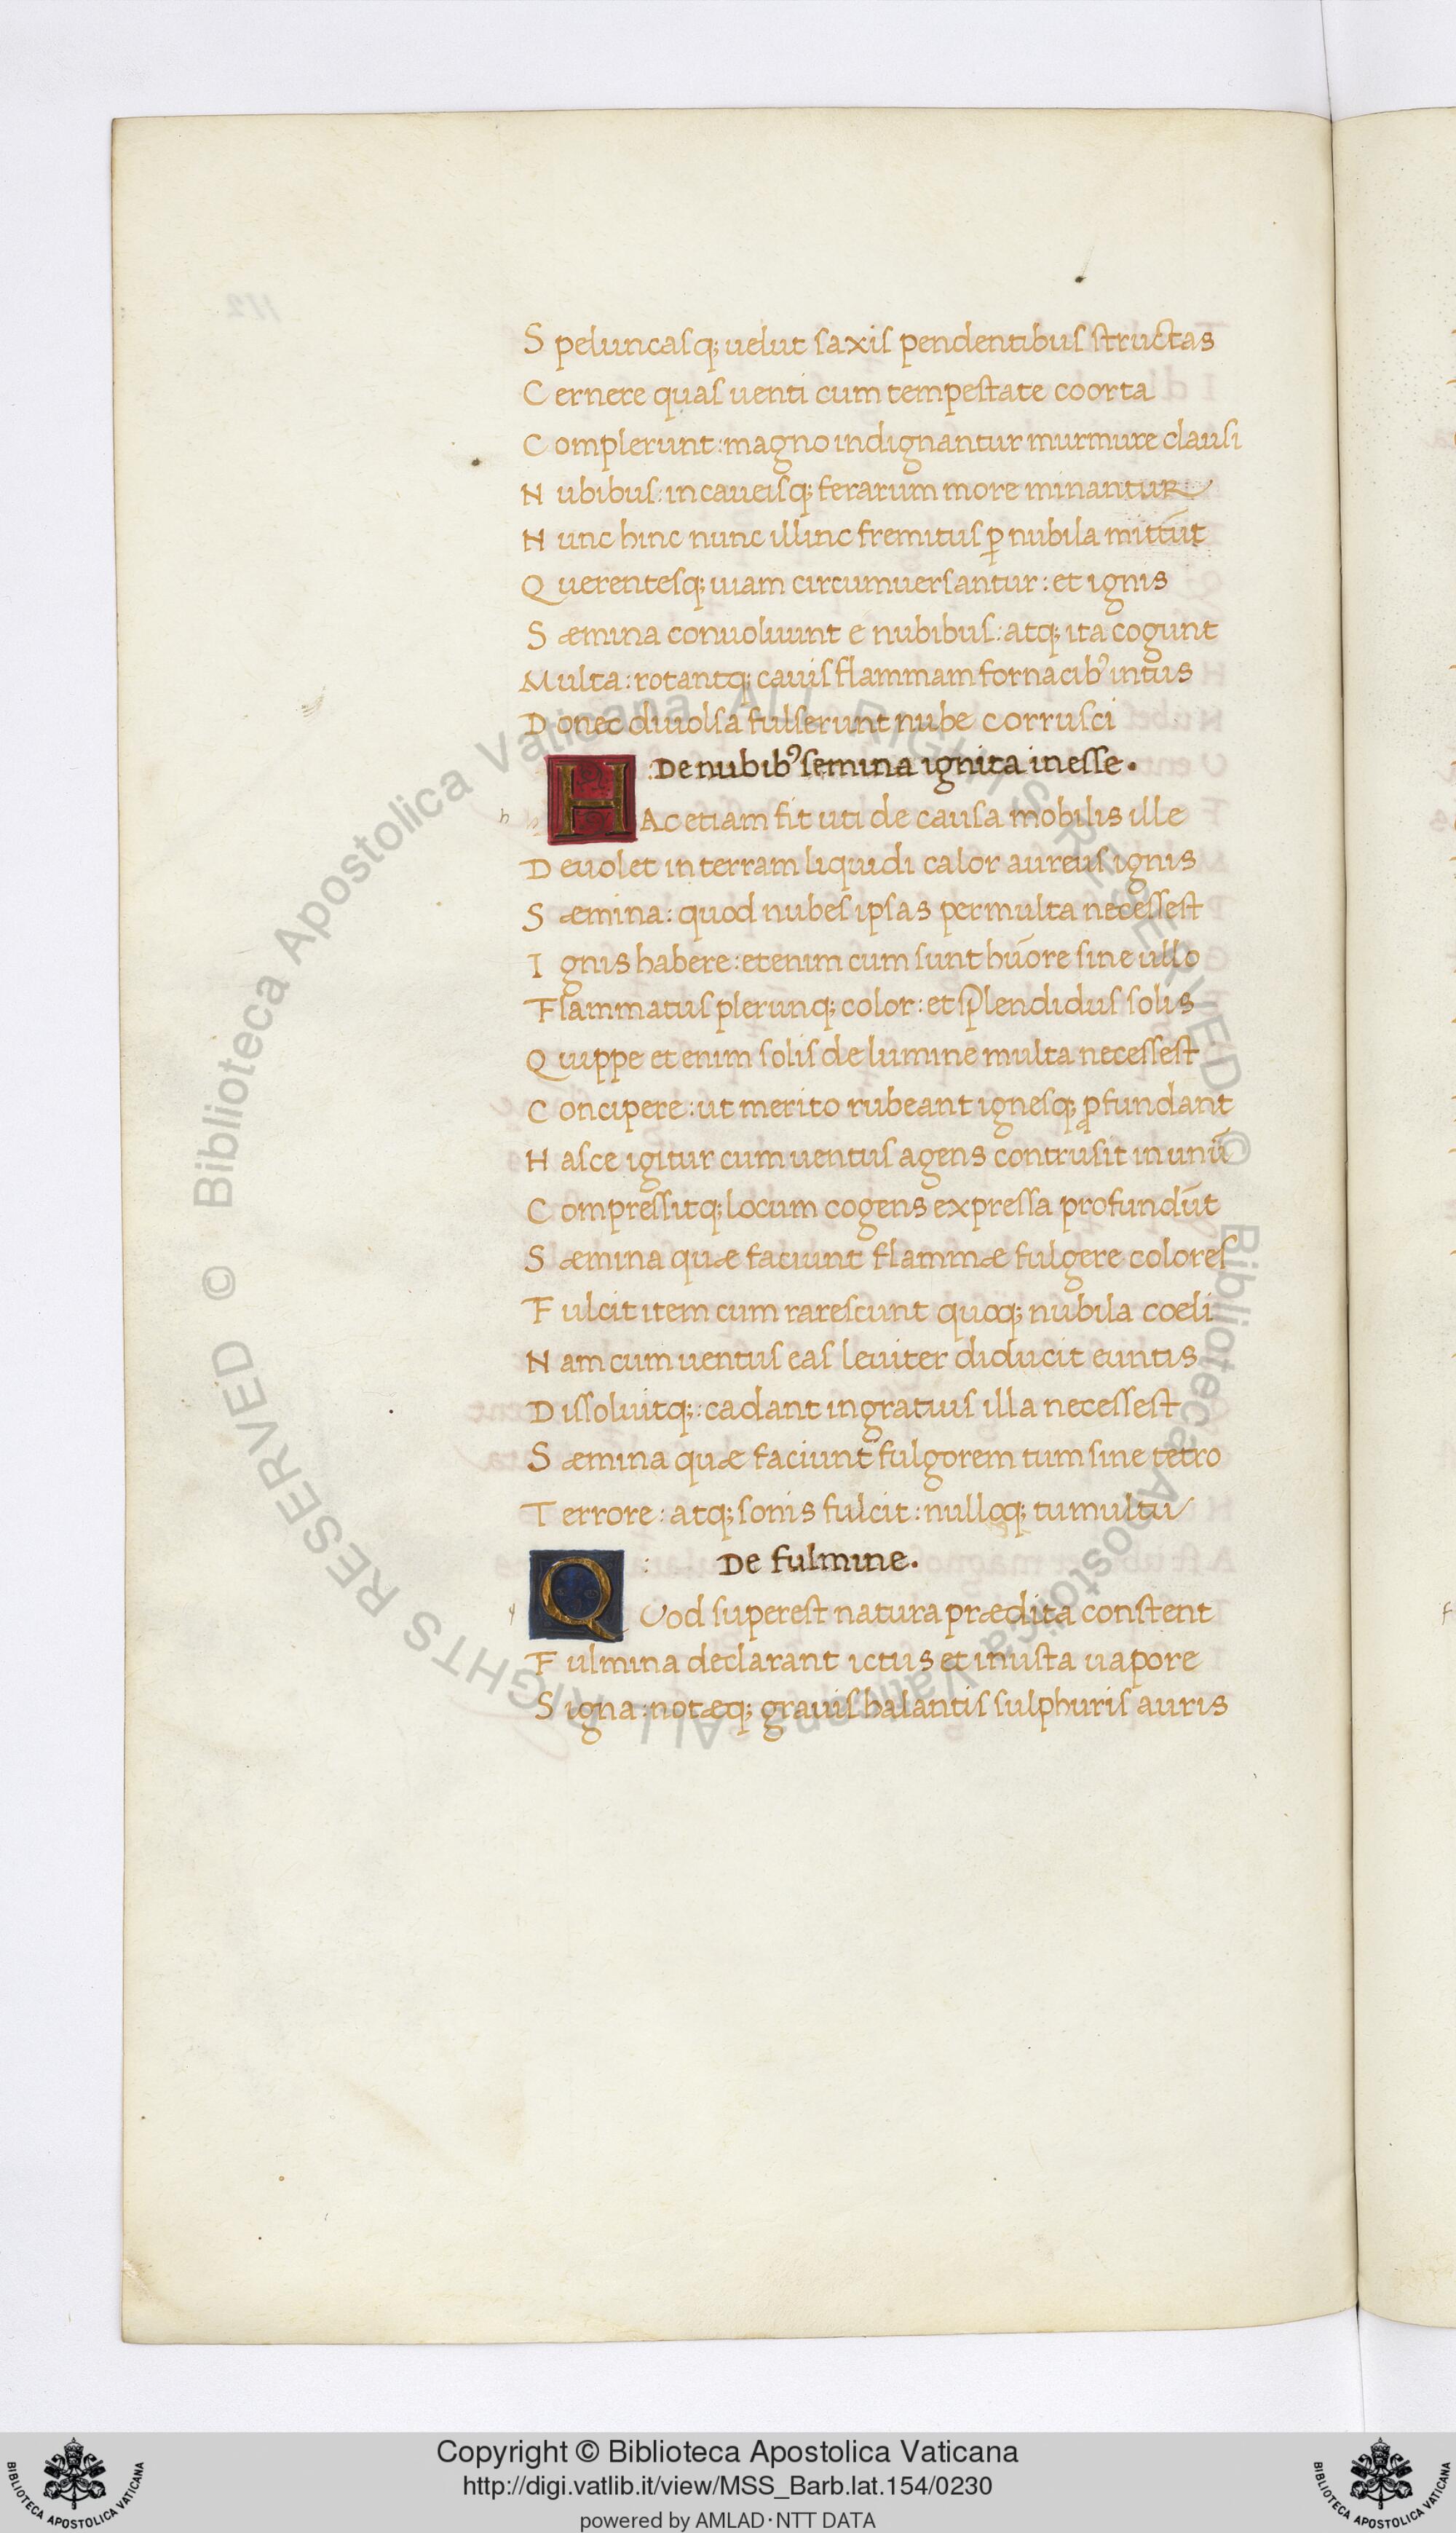 Speluncasq; uelut saxis pendentibus structas
Cernere quas uenti cum tempestate coorta
Complerunt: magno indignantur murmure clausi
Nubibus: in caueisq; ferarum more minantur
Nunc hinc nunc illinc fremitus ꝑ nubila mittūt
Querentesq; uiam circumuersantur: et ignis
Sæmina conuoluunt e nubibus: atq; ita cogunt
Multa: rotantq; cauis flammam fornacibꝰ intus
Donec diuolsa fulserunt nube corrusci
:De nubibꝰ semina ignita inesse.
h HAc etiam fit uti de causa mobilis ille
Deuolet in terram liquidi calor aureus ignis
Sæmina: quod nubes ipsas permulta necessest
Ignis habere: etenim cum sunt hūore sine ullo
Flammatus plerunq; color: et splendidus solis
Quippe et enim solis de lumine multa necessest
Concipere: ut merito rubeant ignesq; ꝓfundant
Hasce igitur cum uentus agens contrusit in unū
Compressitq; locum cogens expressa profundūt
Sæmina quæ faciunt flammæ fulgere colores
Fulcit item cum rarescunt quoq; nubila coeli
Nam cum uentus eas leuiter diducit euntis
Dissoluitq;: cadant ingratuis illa necessest
Sæmina quæ faciunt fulgorem tum sine tetro
Terrore: atq; sonis fulcit: nulloq; tumultu
: De fulmine.
q QUod superest natura prædita constent
Fulmina declarant ictus et inusta uapore
Signa: notæq; grauis halantis sulphuris auris
112
© Biblioteca Apostolica Vaticana ALL RIGHTS RESERVED
© Biblioteca Apostolica Vaticana ALL RIGHTS RESERVED
Copyright © Biblioteca Apostolica Vaticana
http://digi.vatlib.it/view/MSS_Barb.lat.154/0230
powered by AMLAD·NTT DATA
BIBLIOTECA APOSTOLICA VATICANA
BIBLIOTECA APOSTOLICA VATICANA